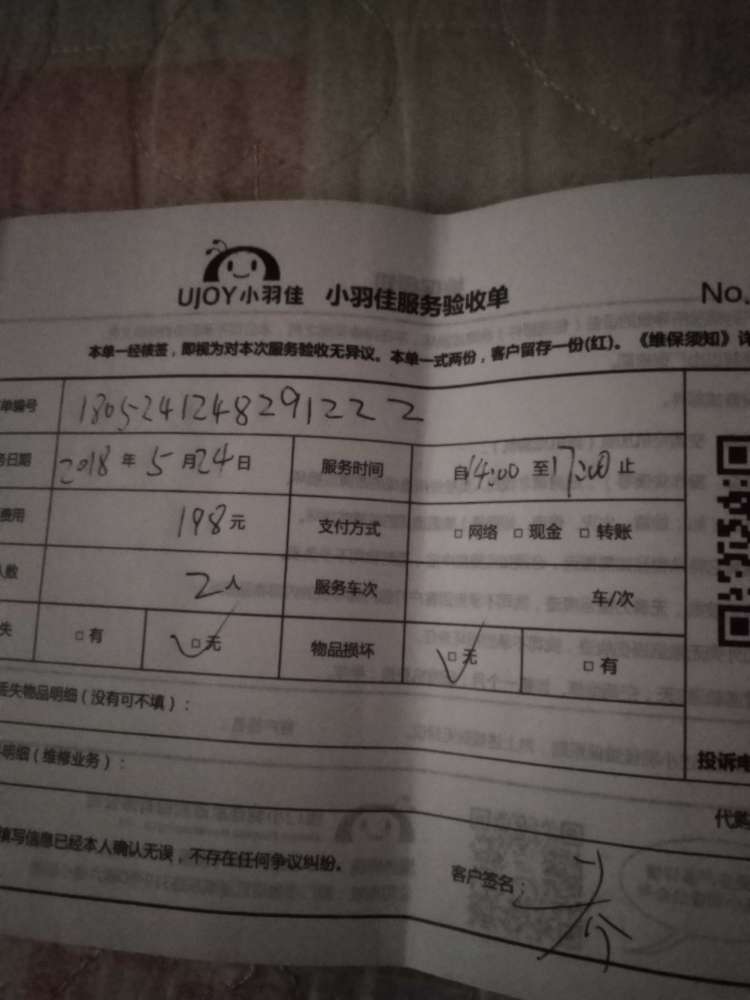 UJOY小羽佳 小羽佳服务验收单
No.
本单一经核签，即视为对本次服务验收无异议。本单一式两份，客户留存一份(红)。《维保须知》详
单编号 1805241248291222
务日期 2018 年 5 月 24 日 服务时间 自14:00 至17:00 止
费用 198元 支付方式 □ 网络 □ 现金 □ 转账
人数 2人 服务车次 车/次
失 □ 有 □ 无 物品损坏 □ 无 □ 有
丢失物品明细（没有可不填）：
明细（维修业务）：
投诉电
代购
填写信息已经本人确认无误，不存在任何争议纠纷。
客户签名：